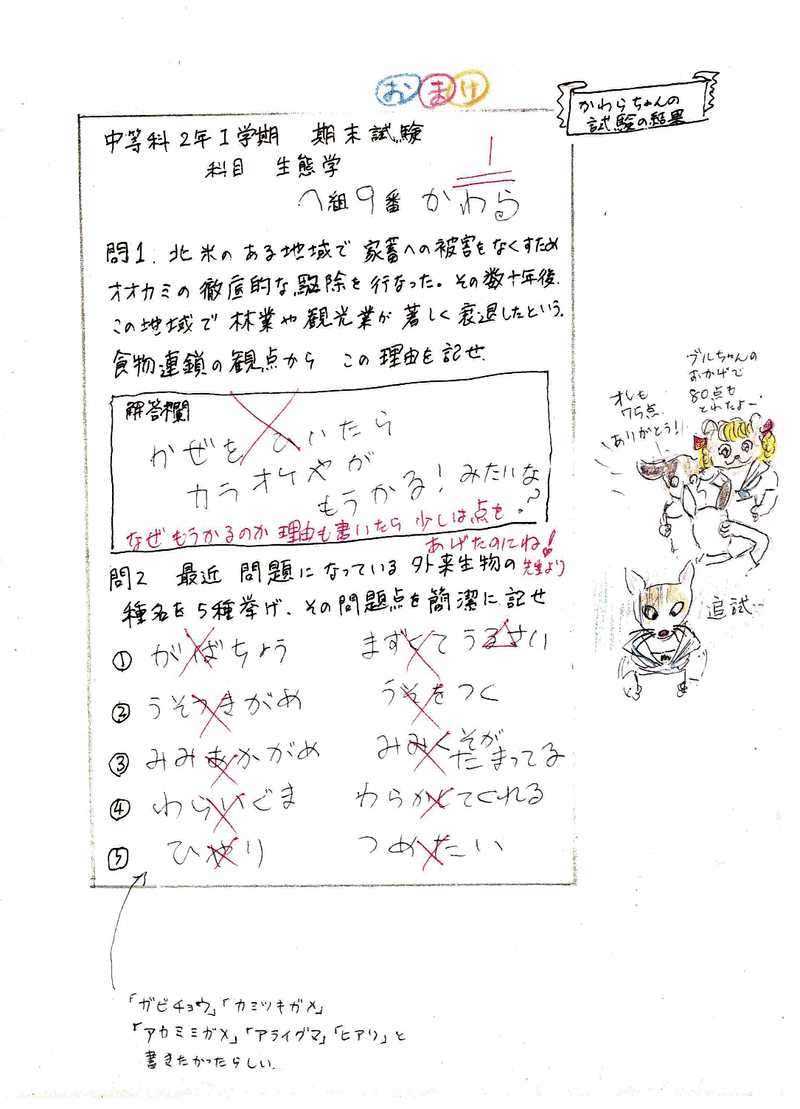 おまけ
かわらちゃんの
試験の結果
中等科2年1学期 期末試験
科目 生態学
1
へ組9番 かわら
問1. 北米のある地域で 家畜への被害をなくすため
オオカミの徹底的な駆除を行なった。その数十年後、
この地域で 林業や観光業が 著しく衰退したという。
食物連鎖の観点から この理由を記せ.
解答欄
かぜをひいたら
カラオケやが
もうかる!みたいな
?
なぜもうかるのか 理由も書いたら 少しは点も
あげたのにね!
先生より
問2 最近 問題になっている 外来生物の
種名を5種挙げ、その問題点を簡潔に記せ
① がばちょう まずくてうるさい
② うそつきがめ うそをつく
③ みみあかがめ みみくそが
たまってる
④ わらいぐま わらかしてくれる
⑤ ひやり つめたい
ブルちゃんの
おかげで
80点も
とれたよー!
オレも
75点.
ありがとう!
追試…
「ガビチョウ」「カミツキガメ」
「アカミミガメ」「アライグマ」「ヒアリ」と
書きたかったらしい.